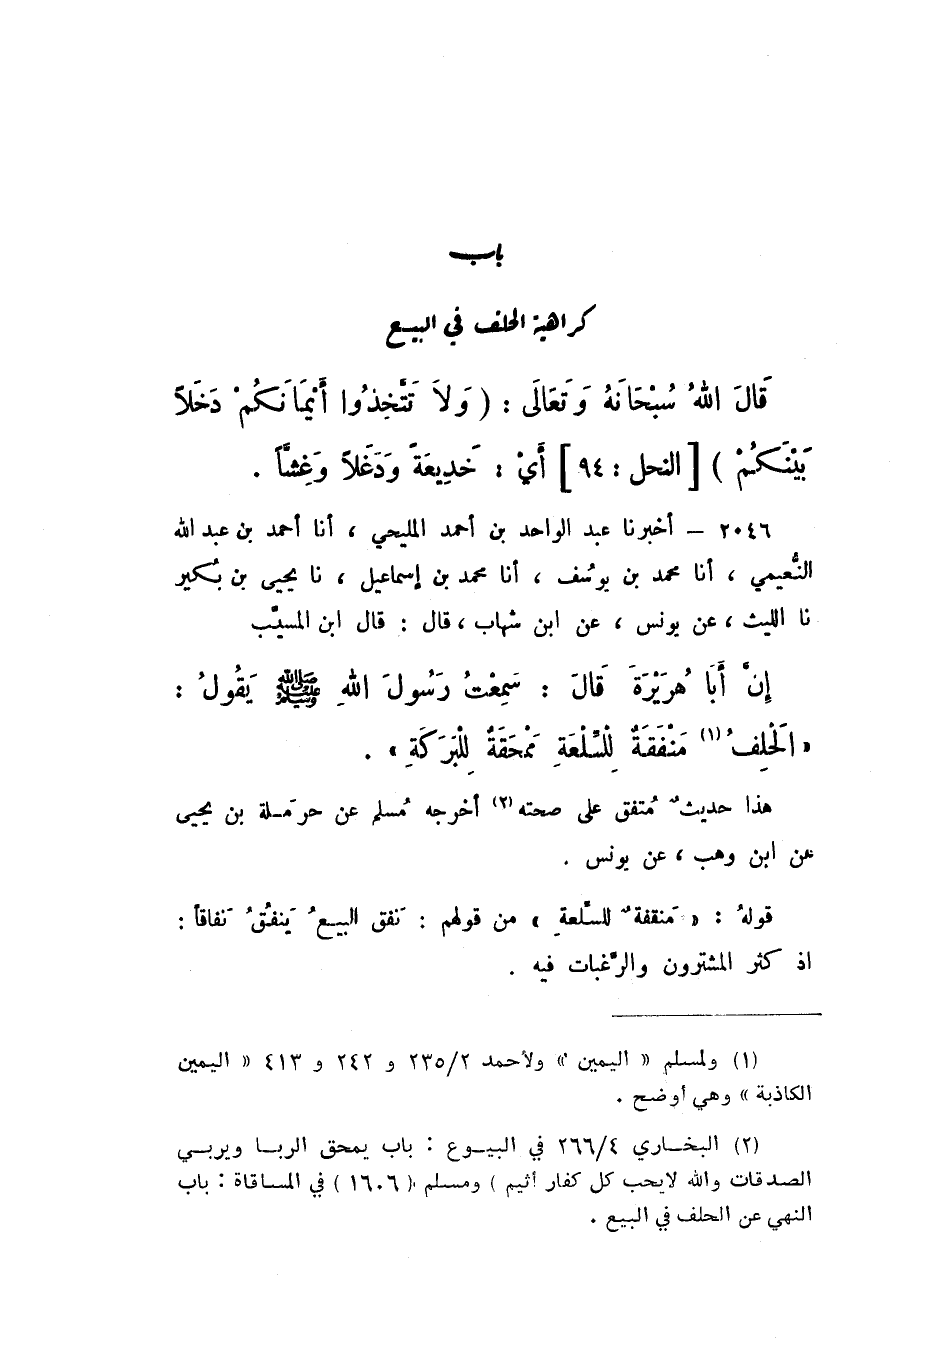 باب
كراهية الحلف في البيع
قَالَ اللهُ سُبْحَانَهُ وَتَعَالَى : ( وَلاَ تَتَّخِذُوا أَيْمَانَكُمْ دَخَلاً
بَيْنَكُمْ ) [ النحل : ٩٤ ] أَيْ : خَدِيعَةً وَدَغَلاً وَغِشّاً .
٢٠٤٦ – أخبرنا عبد الواحد بن أحمد المليحي ، أنا أحمد بن عبد الله
النُّعيمي ، أنا محمد بن يوسُف ، أنا محمد بن إسماعيل ، نا يحيى بن بُكير
نا الليث ، عن يونس ، عن ابن شهاب ، قال : قال ابن المسيَّب
إِنَّ أَبَا هُرَيْرَةَ قَالَ : سَمِعْتُ رَسُولَ اللهِ ﷺ يَقُولُ :
« الْحَلِفُ (١) مَنْفَقَةٌ لِلسِّلْعَةِ مَمْحَقَةٌ لِلْبَرَكَةِ » .
هذا حديثٌ مُتفق على صحته (٢) أخرجه مُسلم عن حرمَلة بن يحيى
عن ابن وهب ، عن يونس .
قولهُ : « مَنقفةٌ للسِّلعةِ » من قولهم : نَفق البيعُ يَنفُقُ نَفاقاً :
اذ كثر المشترون والرَّغبات فيه .
(١) ولمسلم « اليمين » ولأحمد ٢٣٥/٢ و ٢٤٢ و ٤١٣ « اليمين
الكاذبة » وهي أوضح .
(٢) البخاري ٢٦٦/٤ في البيوع : باب يمحق الربا ويربي
الصدقات والله لايحب كل كفار أثيم ) ومسلم ( ١٦٠٦ ) في المساقاة : باب
النهي عن الحلف في البيع .